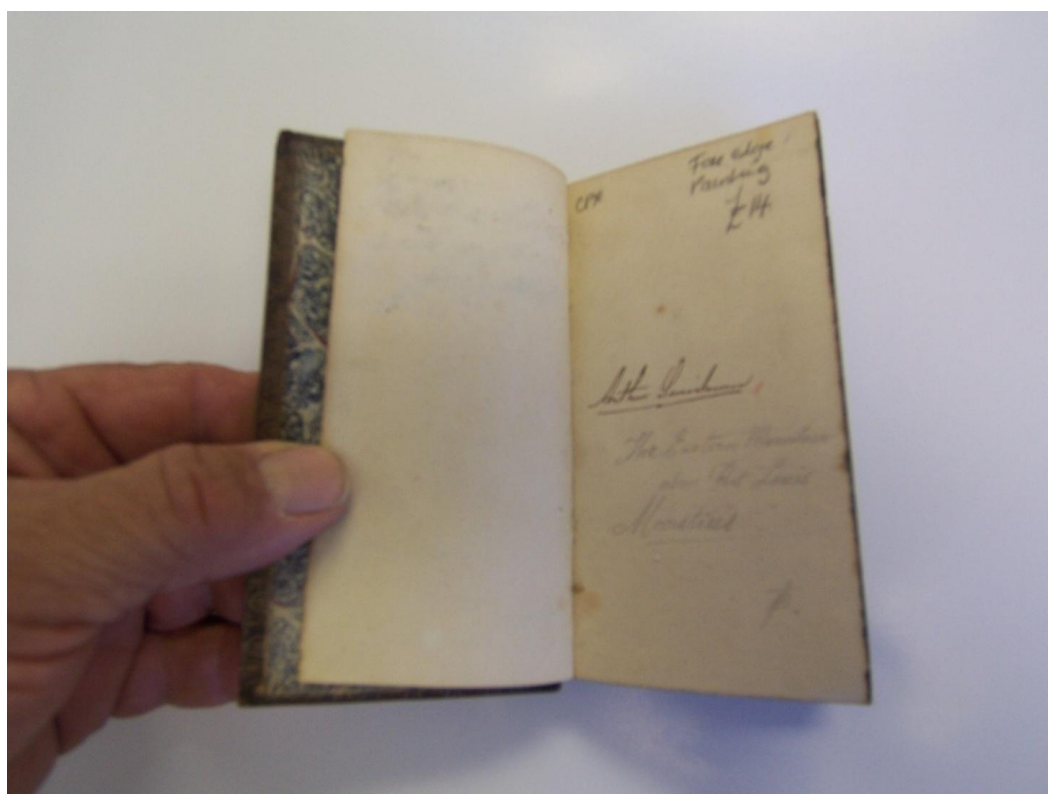 Fore edge
Painting
£14
CPX
The Eastern Mountain
Port Louis
Mauritius